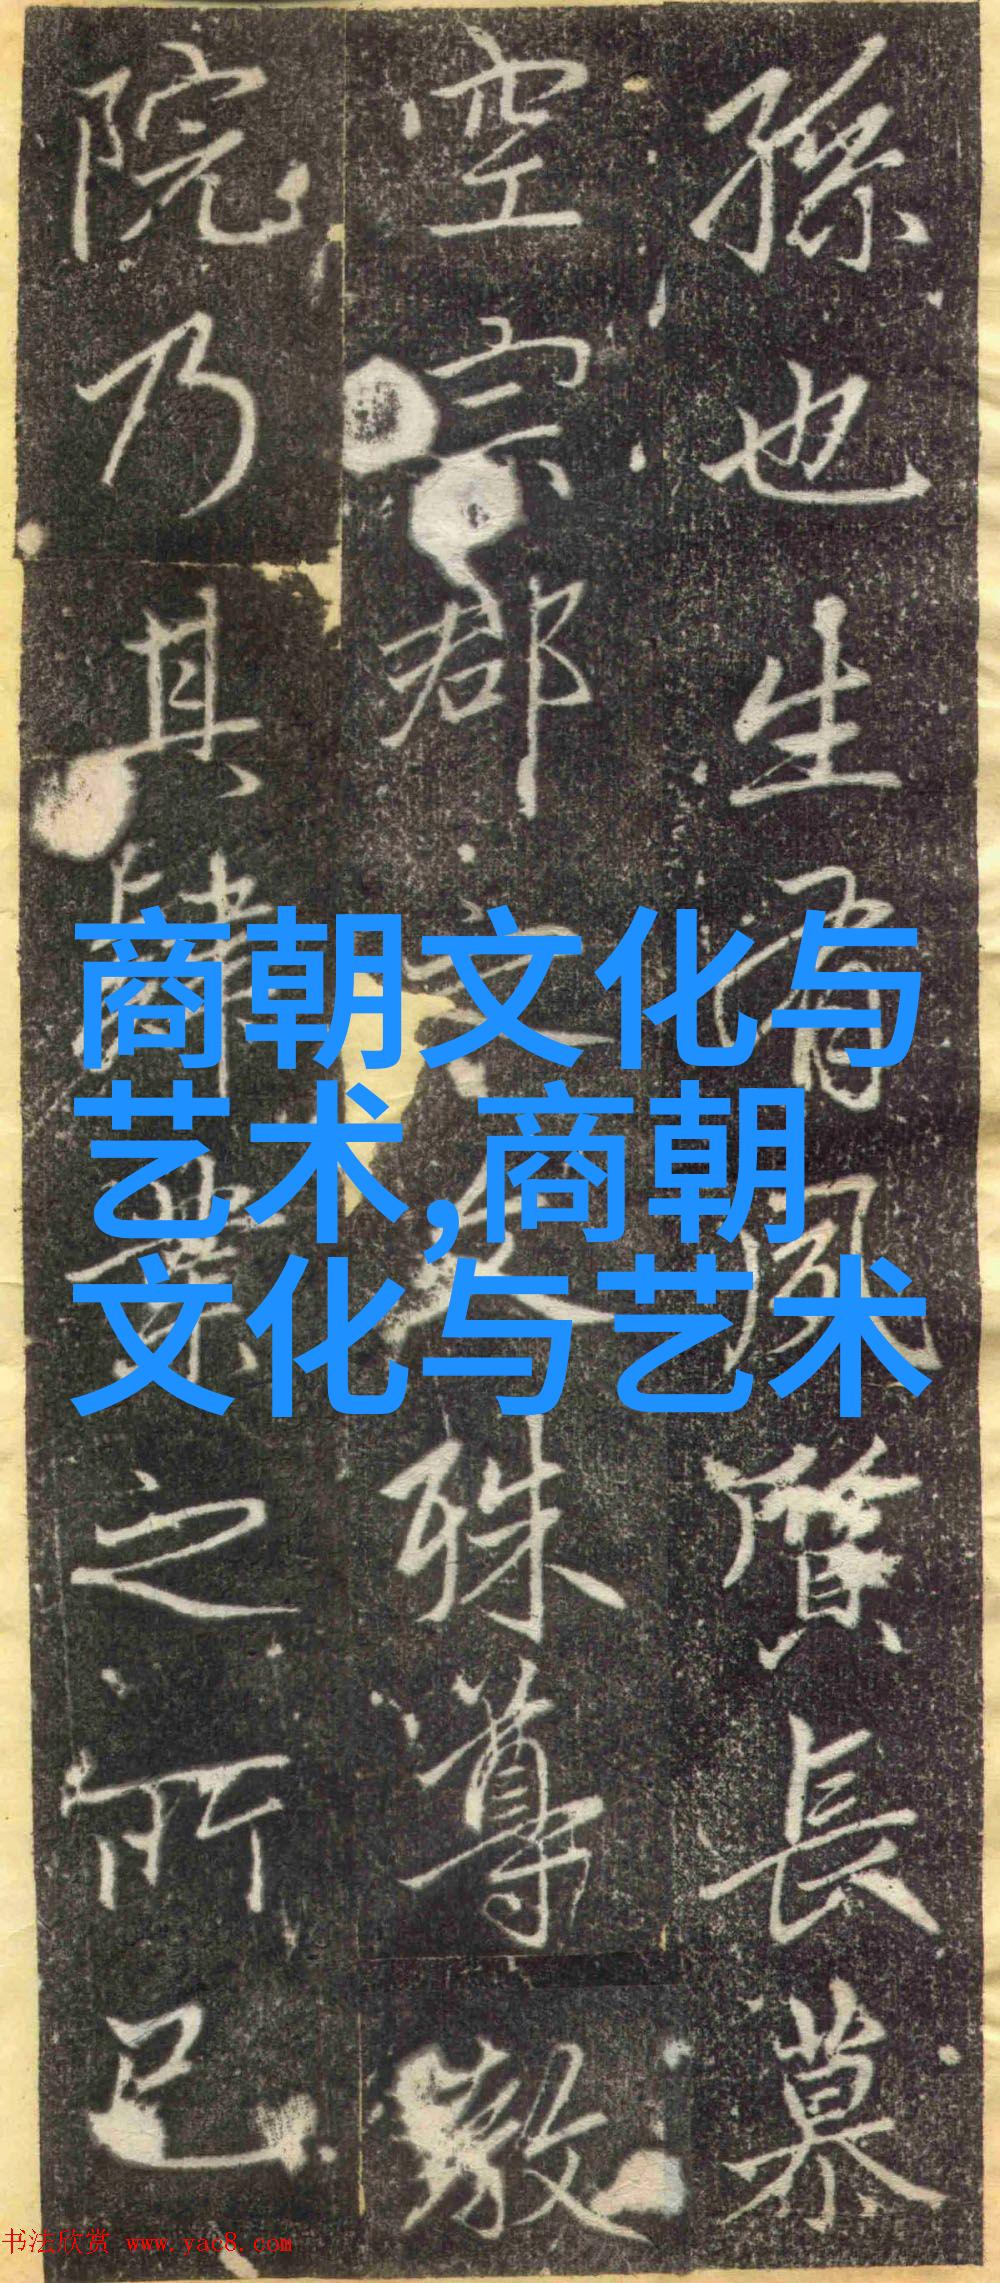 孫也生有風質長慕
空宗郡文殊尊
院乃其肄業之所已
商朝文化与
艺术,商朝
文化与艺术
书法欣赏 www.yac8.com